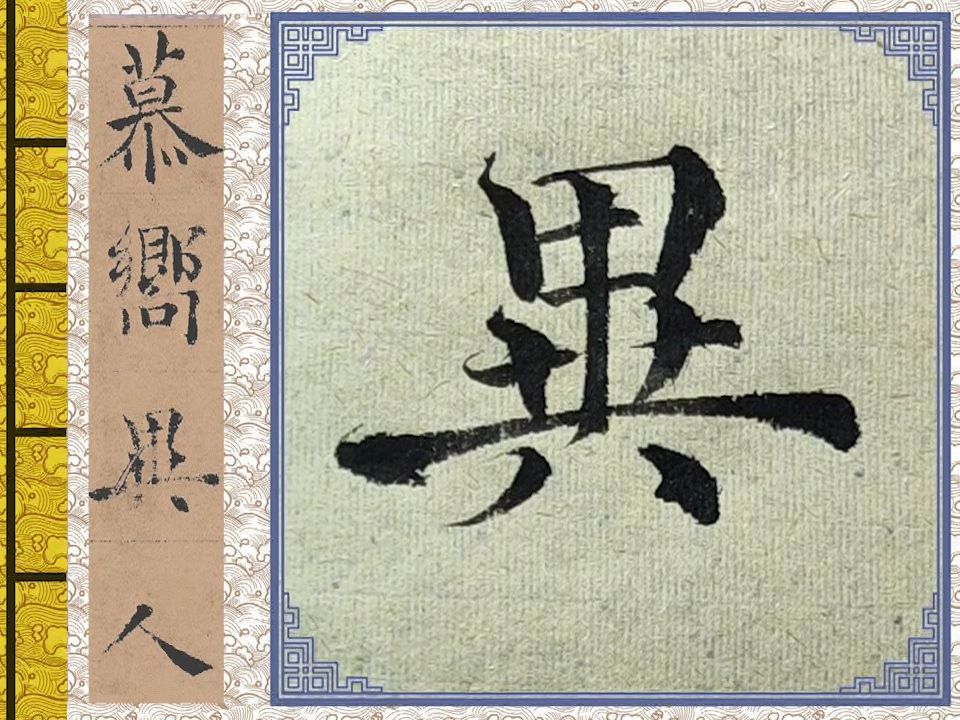 慕嚮異人
異